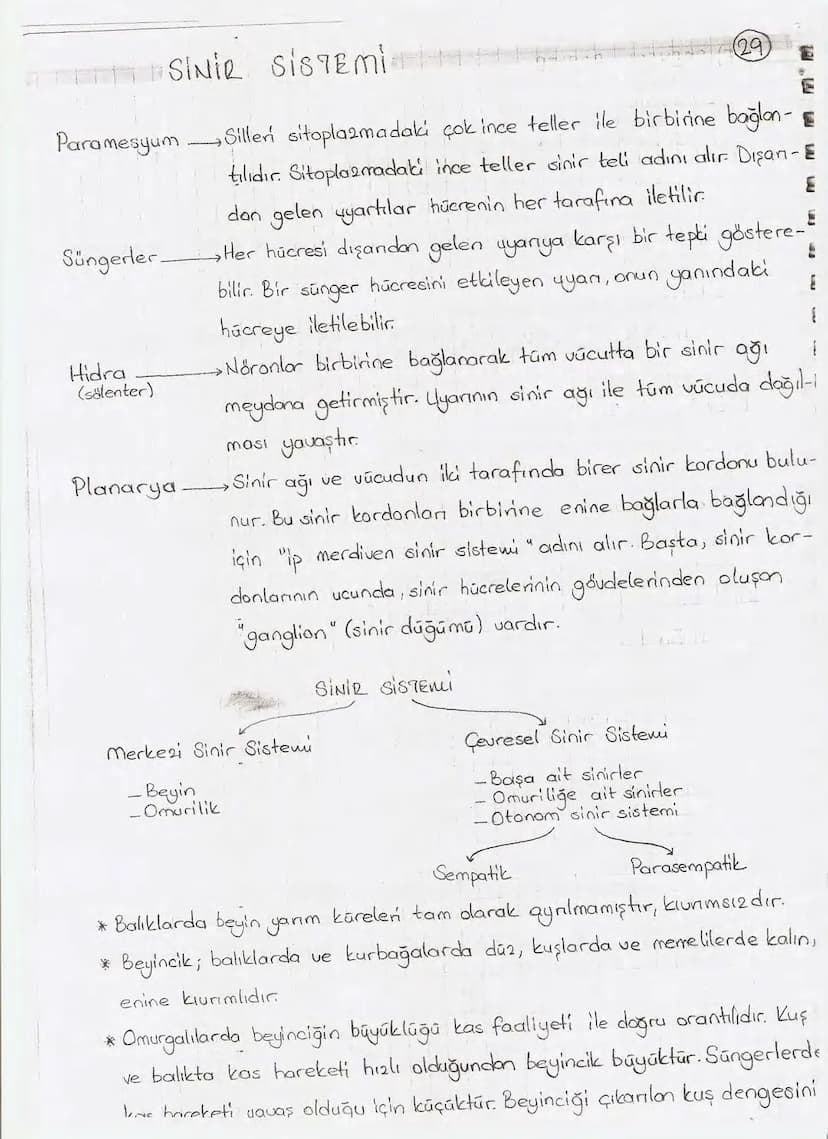 SİNİR SİSTEMİ
29
Paramesyum → Silleri sitoplazmadaki çok ince teller ile birbirine bağlan-
tılıdır. Sitoplazmadaki ince teller sinir teli adını alır. Dışarı-
dan gelen uyartılar hücrenin her tarafına iletilir.
Süngerler → Her hücresi dışarıdan gelen uyarıya karşı bir tepki göstere-
bilir. Bir sünger hücresini etkileyen uyarı, onun yanındaki
hücreye iletilebilir.
Hidra → Nöronlar birbirine bağlanarak tüm vücutta bir sinir ağı
(sölenter)
meydana getirmiştir. Uyarının sinir ağı ile tüm vücuda dağıl-
ması yavaştır.
Planarya → Sinir ağı ve vücudun iki tarafında birer sinir kordonu bulu-
nur. Bu sinir kordonları birbirine enine bağlarla bağlandığı
için "ip merdiven sinir sistemi" adını alır. Başta, sinir kor-
donlarının ucunda, sinir hücrelerinin gövdelerinden oluşan
"ganglion" (sinir düğümü) vardır.
SİNİR SİSTEMİ
Merkezi Sinir Sistemi
- Beyin
- Omurilik
Çevresel Sinir Sistemi
- Başa ait sinirler
- Omuriliğe ait sinirler
- Otonom sinir sistemi
Sempatik
Parasempatik
* Balıklarda beyin yarım küreleri tam olarak ayrılmamıştır, kıvrımsızdır.
* Beyincik; balıklarda ve kurbağalarda düz, kuşlarda ve memelilerde kalın,
enine kıvrımlıdır.
* Omurgalılarda beyinciğin büyüklüğü kas faaliyeti ile doğru orantılıdır. Kuş
ve balıkta kas hareketi hızlı olduğundan beyincik büyüktür. Süngerlerde
kas hareketi yavaş olduğu için küçüktür. Beyinciği çıkarılan kuş dengesini